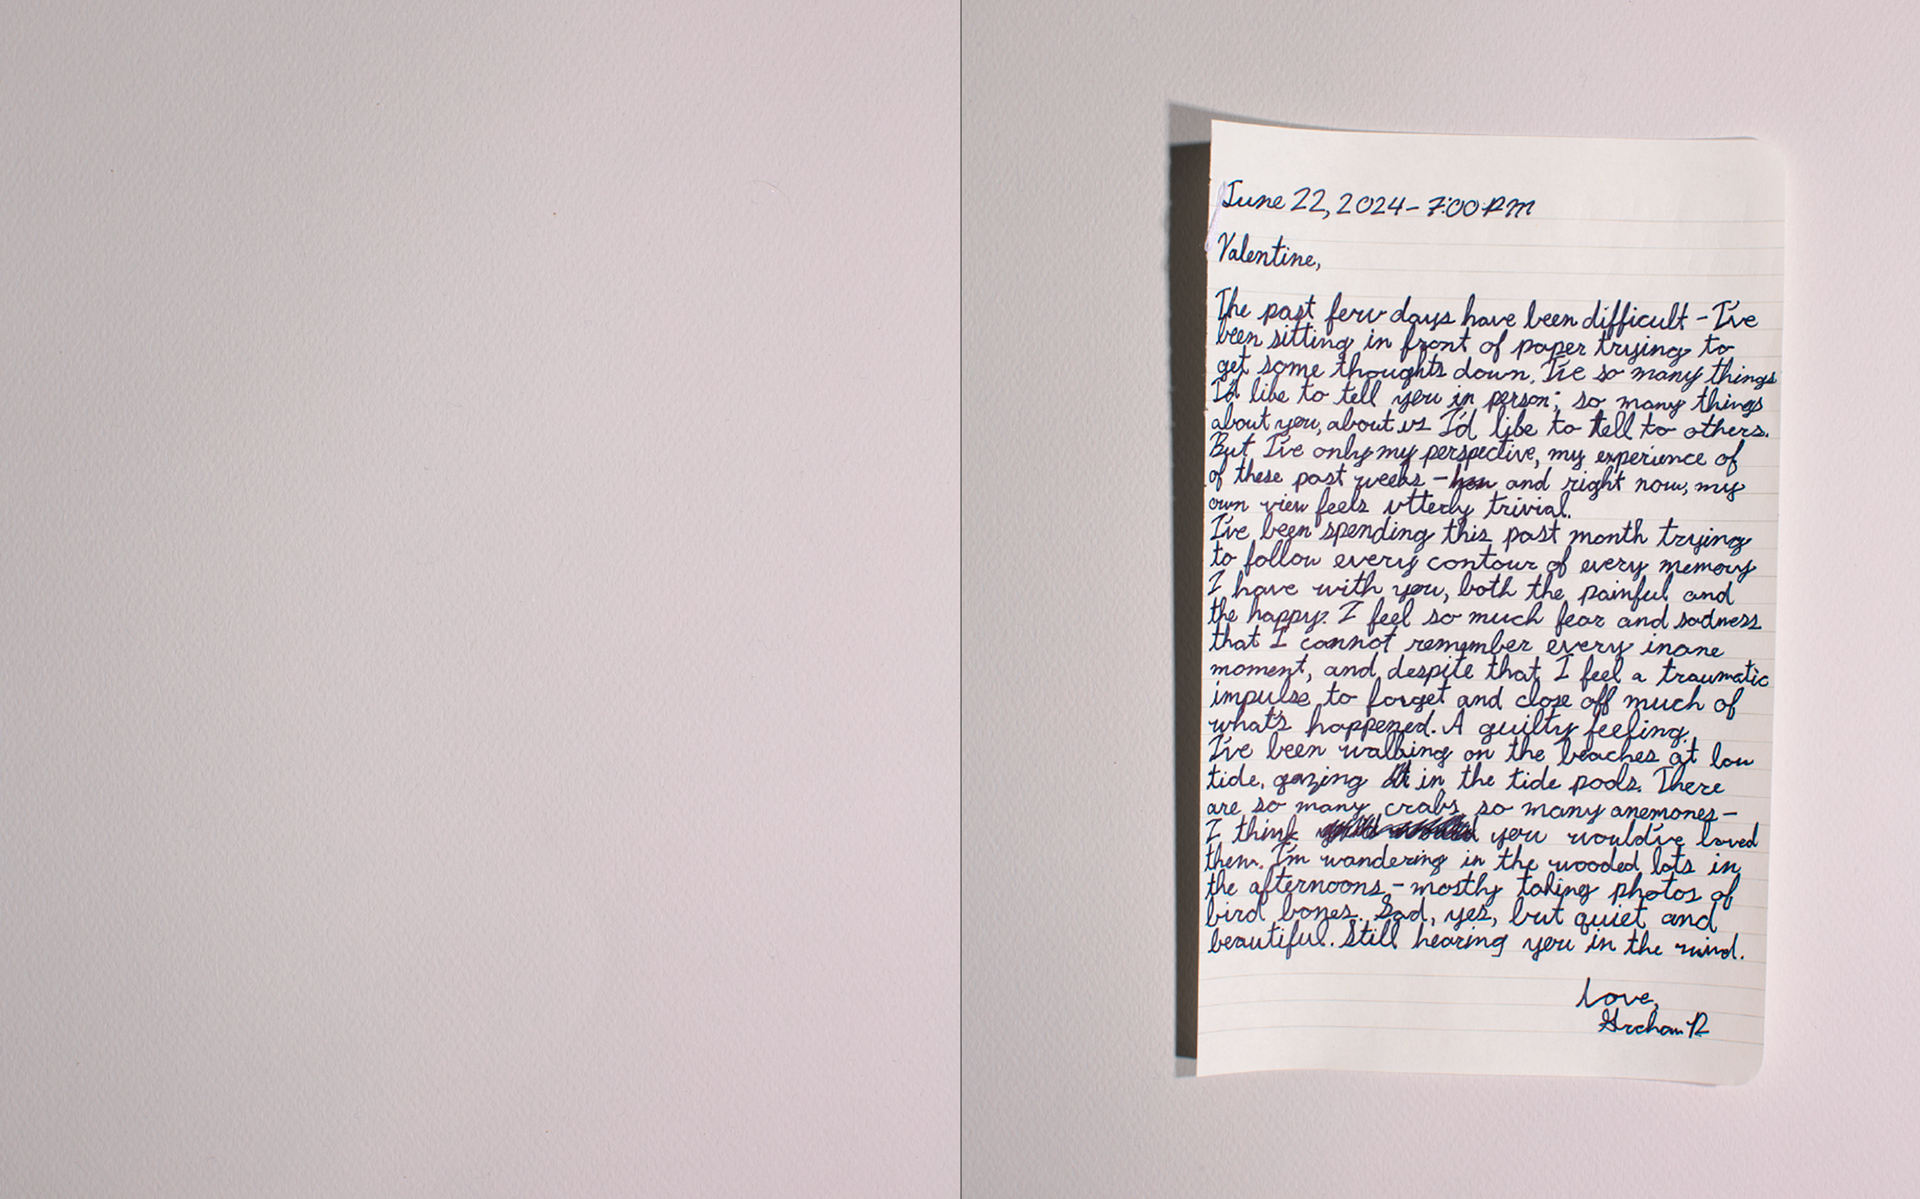 June 22, 2024 - 7:00 PM
Valentine,
The past few days have been difficult - I've
been sitting in front of paper trying to
get some thoughts down. I've so many things
I'd like to tell you in person; so many things
about you, about us I'd like to tell to others.
But I've only my perspective, my experience of
of these past weeks - and right now, my
own view feels utterly trivial.
I've been spending this past month trying
to follow every contour of every memory
I have with you, both the painful and
the happy. I feel so much fear and sadness
that I cannot remember every inane
moment, and despite that I feel a traumatic
impulse to forget and close off much of
what's happened. A guilty feeling.
I've been walking on the beaches at low
tide, gazing in the tide pools. There
are so many crabs so many anemones -
I think you would've loved
them. I'm wandering in the wooded lots in
the afternoons - mostly taking photos of
bird bones. Sad, yes, but quiet and
beautiful. Still hearing you in the wind.
Love,